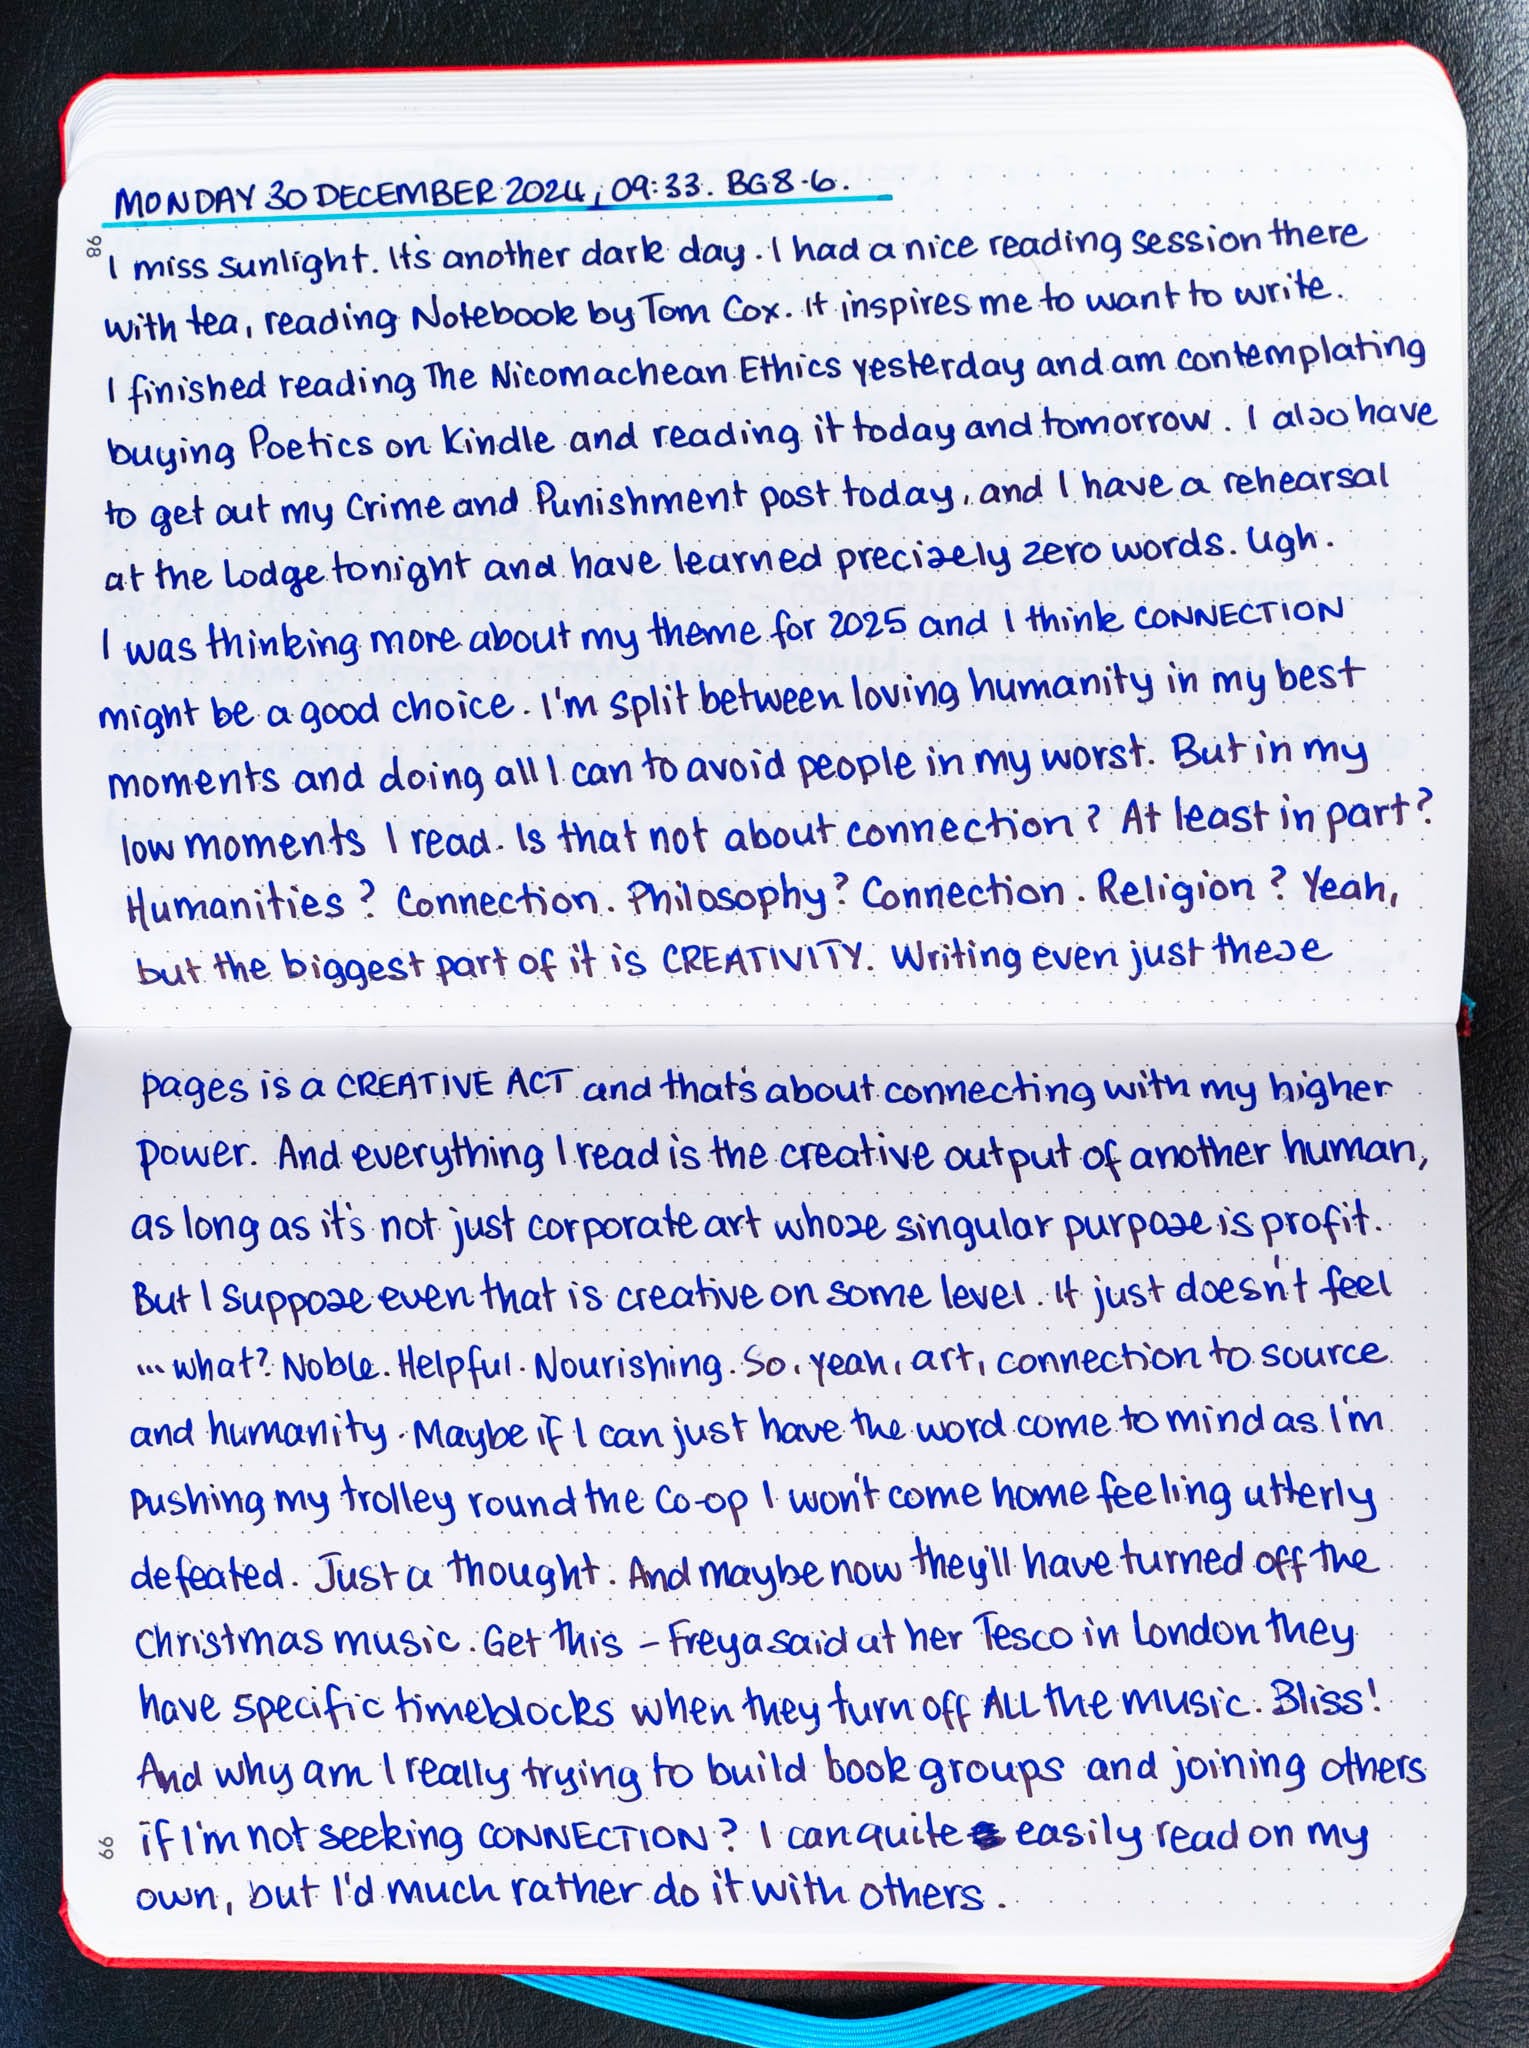 MONDAY 30 DECEMBER 2024, 09:33. BG 8.6.
98
I miss sunlight. It's another dark day. I had a nice reading session there
with tea, reading Notebook by Tom Cox. It inspires me to want to write.
I finished reading The Nicomachean Ethics yesterday and am contemplating
buying Poetics on Kindle and reading it today and tomorrow. I also have
to get out my Crime and Punishment post today, and I have a rehearsal
at the Lodge tonight and have learned precisely zero words. Ugh.
I was thinking more about my theme for 2025 and I think CONNECTION
might be a good choice. I'm split between loving humanity in my best
moments and doing all I can to avoid people in my worst. But in my
low moments I read. Is that not about connection? At least in part?
Humanities? Connection. Philosophy? Connection. Religion? Yeah,
but the biggest part of it is CREATIVITY. Writing even just these
pages is a CREATIVE ACT and that's about connecting with my higher
power. And everything I read is the creative output of another human,
as long as it's not just corporate art whose singular purpose is profit.
But I suppose even that is creative on some level. It just doesn't feel
... what? Noble. Helpful. Nourishing. So, yeah, art, connection to source
and humanity. Maybe if I can just have the word come to mind as I'm
pushing my trolley round the Co-op I won't come home feeling utterly
defeated. Just a thought. And maybe now they'll have turned off the
Christmas music. Get this – Freya said at her Tesco in London they
have specific timeblocks when they turn off ALL the music. Bliss!
And why am I really trying to build book groups and joining others
if I'm not seeking CONNECTION? I can quite easily read on my
99
own, but I'd much rather do it with others.